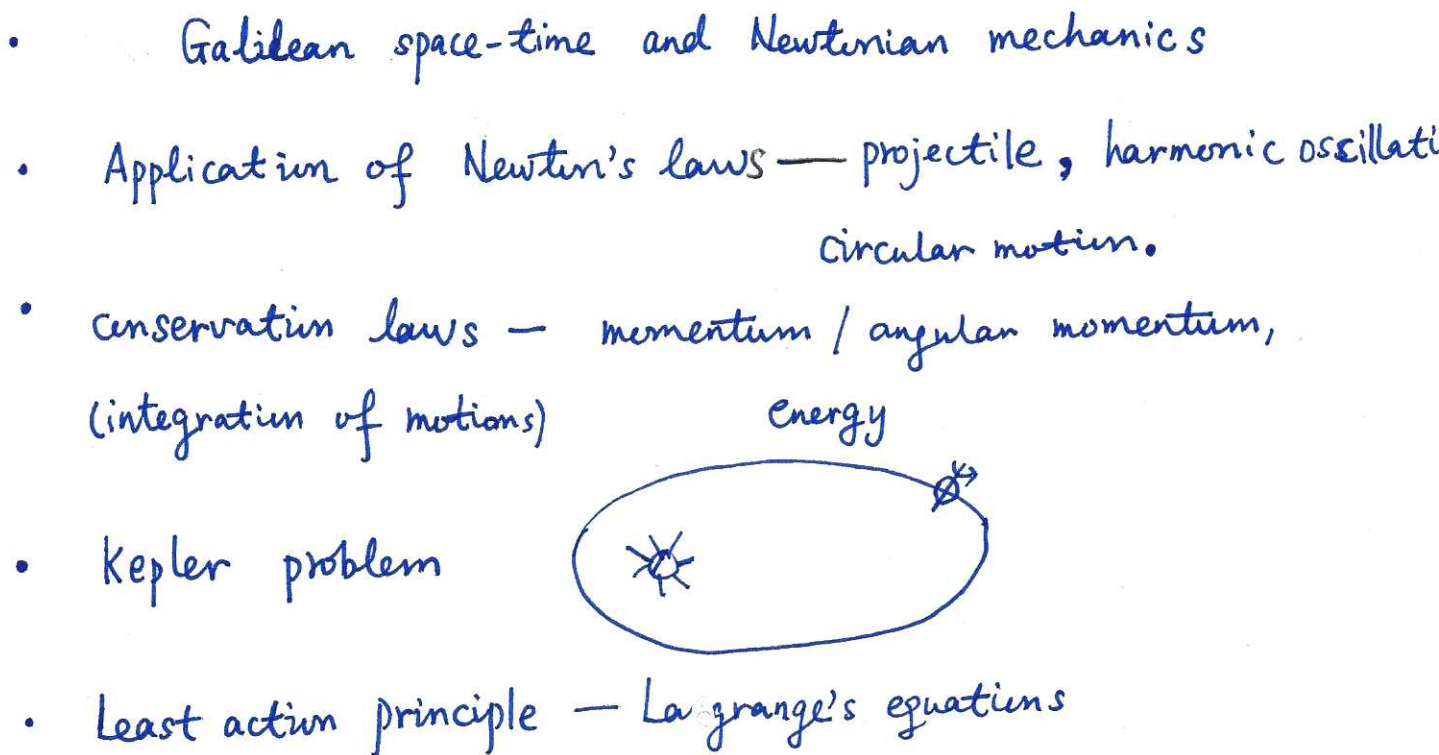 • Galilean space-time and Newtonian mechanics
• Application of Newton's laws — projectile, harmonic oscillati
circular motion.
• conservation laws — momentum / angular momentum,
(integration of motions) energy
• Kepler problem
• Least action principle — Lagrange's equations